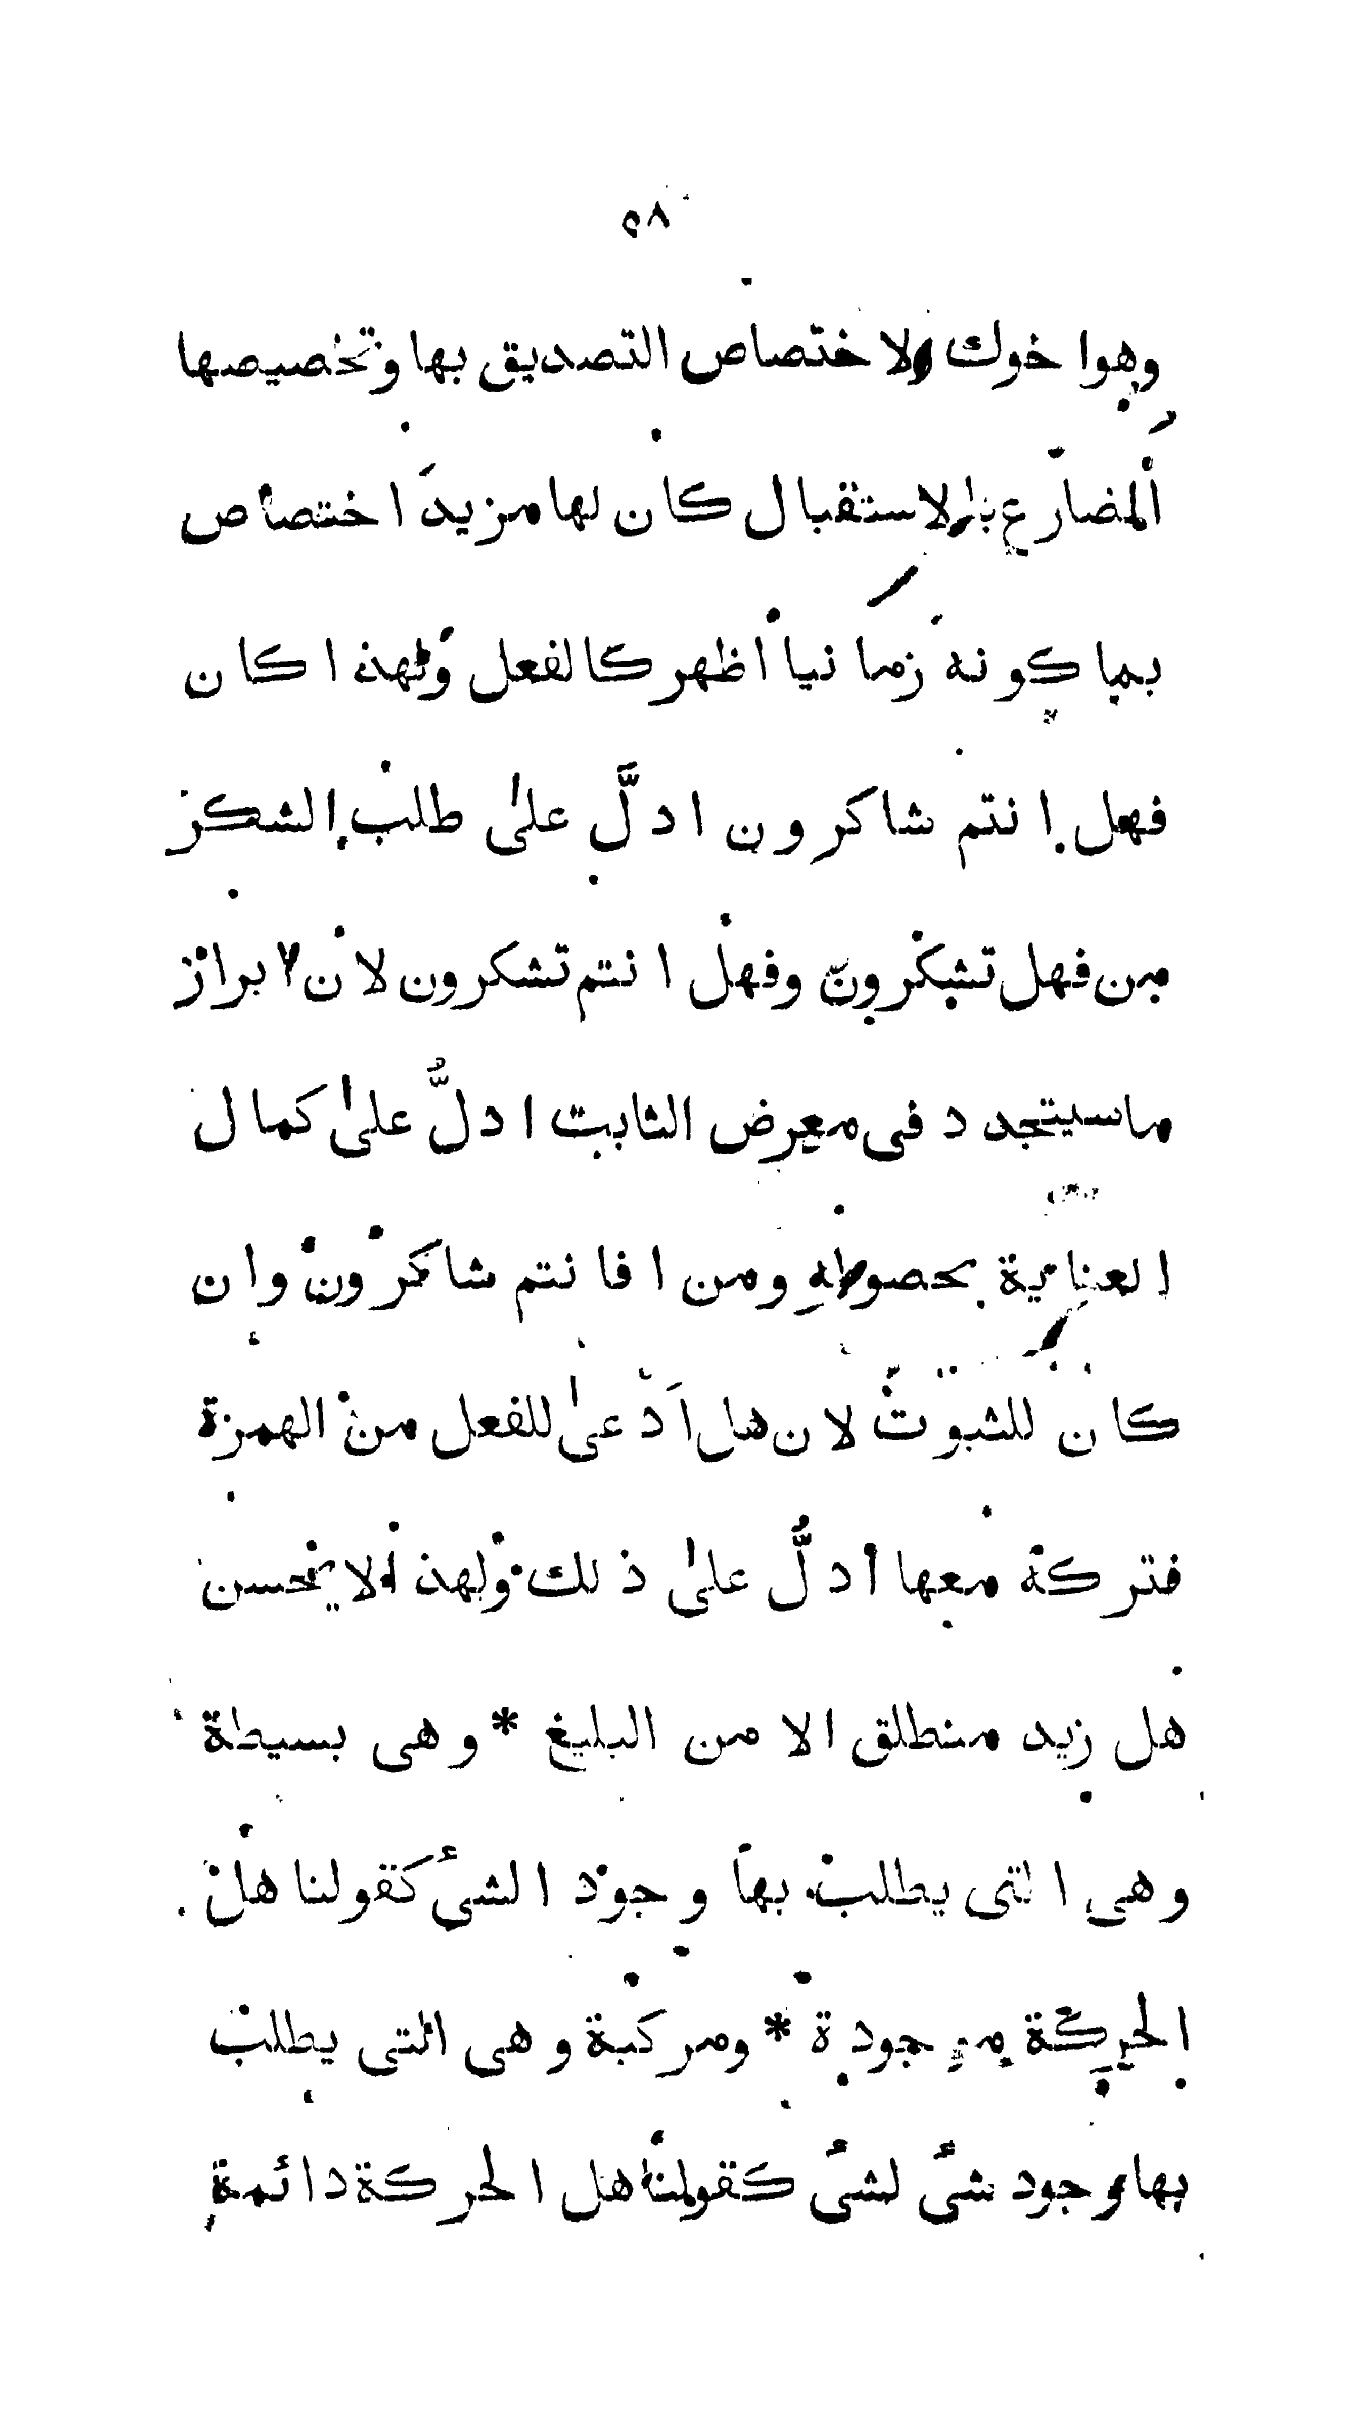 ٥٨
وهو اخوك ولاختصاص التصديق بها وتخصيصها
المضارع بالاستقبال كان لها مزيد اختصاص
بما كونه زمانيا اظهر كالفعل ولهذا كان
فهل انتم شاكرون ادلَّ على طلب الشكر
من فهل تشكرون وفهل انتم تشكرون لان ابراز
ما سيتجدد فى معرض الثابت ادلُّ على كمال
العناية بحصوله ومن افانتم شاكرون وان
كان للثبوت لان هل ادعى للفعل من الهمزة
فتركه معها ادلُّ على ذلك ولهذا لا يحسن
هل زيد منطلق الا من البليغ * وهى بسيطة
وهى التى يطلب بها وجود الشئ كقولنا هل
الحركة موجودة * ومركبة وهى التى يطلب
بها وجود شئ لشئ كقولنا هل الحركة دائمة